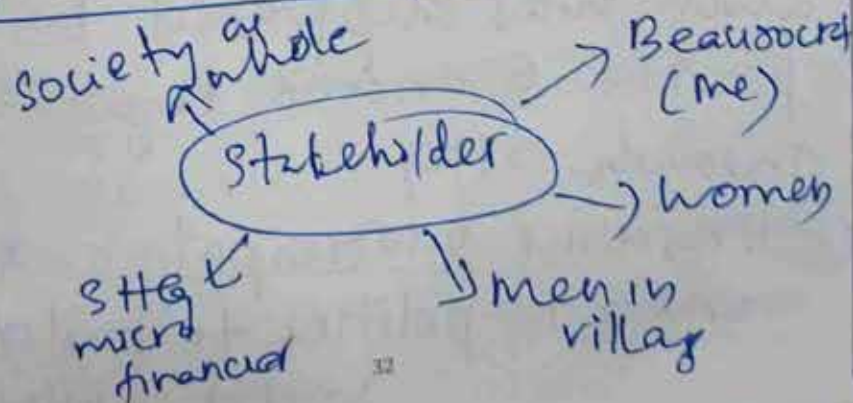 society as
a whole
Beaurocrat
(me)
Stakeholder
women
SHG
micro
financial
men in
village
32